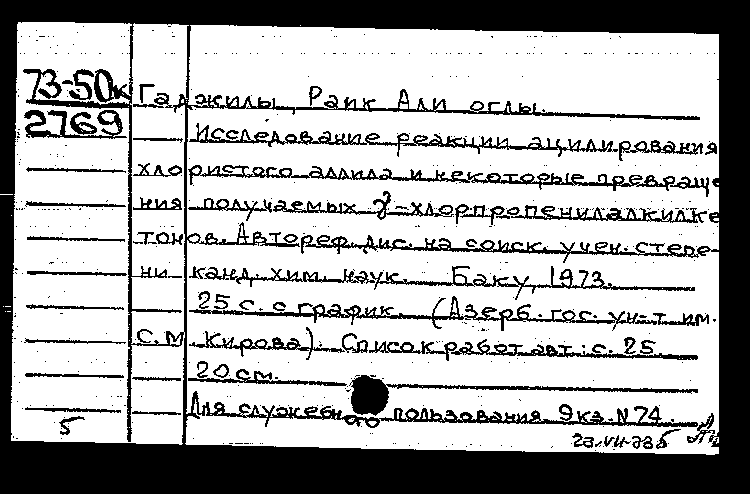 73-50к
2769
Гаджилы, Раик Али оглы.
Исследование реакции ацилирования
хлористого аллила и некоторые превраще
ния получаемых γ-хлорпропенилалкилке
тонов. Автореф. дис. на соиск. учен. степе-
ни канд. хим. наук. Баку, 1973.
25 с. с график. (Азерб. гос. ун-т им.
С.М. Кирова). Список работ авт.: с. 25.
20 см.
Для служебного пользования. Экз. N 74.
5